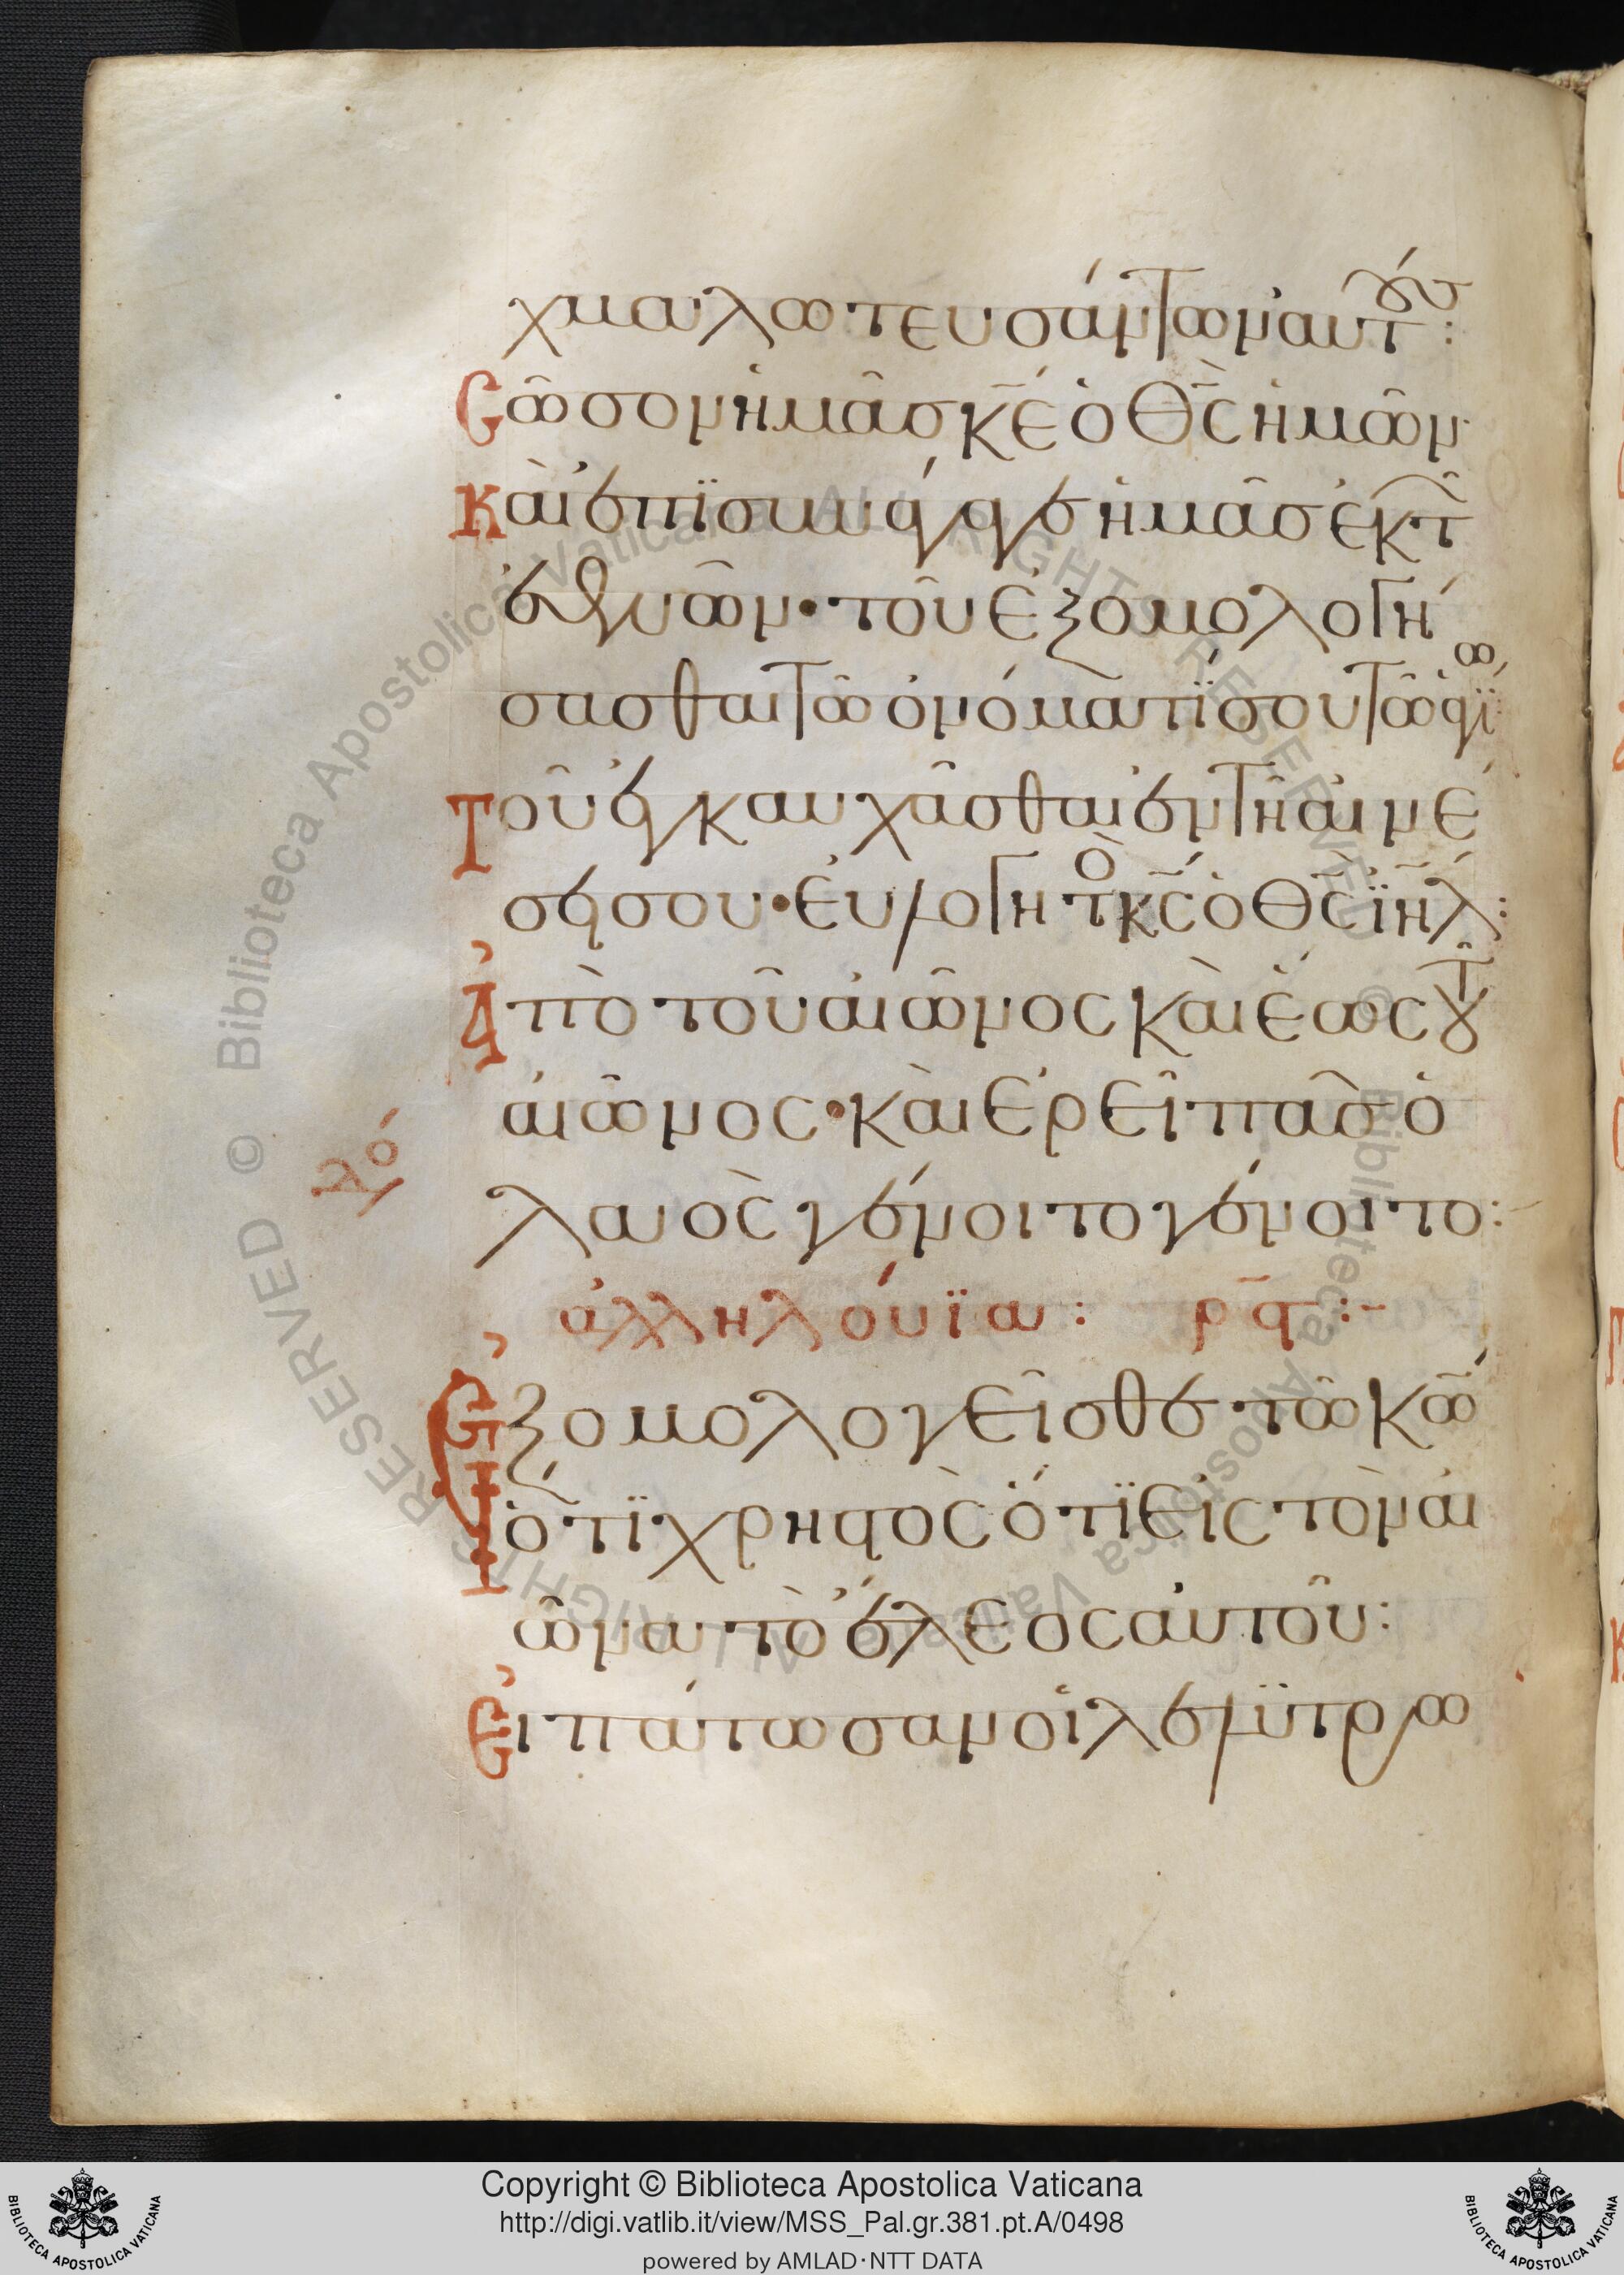 χμαλωτευσάντων αυτούς:
Σῶσον ἡμᾶς κ̅ε̅ ὁ θ̅ς̅ ἡμῶν·
Καὶ ἐπϊσυνάγαγε ἡμᾶς ἐκ τῶν
ἐθνῶν· τοῦ ἐξομολογή
σασθαι τῶ ὀνόματί σου τῶ ἁγίω
Τοῦ ἐγκαυχᾶσθαι ἐν τῆ αἰνέ
σει σου· ἐυλογητὸς κ̅ς̅ ὁ θ̅ς̅ ἰ̅η̅λ̅:
Ἀπὸ τοῦ αἰῶνος καὶ ἕως τοῦ
αἰῶνος· καὶ ἐρεῖ πᾶς ὁ
λαὸς γένοιτο γένοιτο:
ἀλληλούϊα: ρ̅ϛ̅:-
Ἐξομολογεῖσθε τῶ κ̅ω̅
ὅτϊ χρηστὸς ὅτϊ εἰς τὸν αἰ
ῶνα τὸ ἔλεος ἀυτοῦ:
Ἐιπάτωσαν οἱ λελϋτρω
Copyright © Biblioteca Apostolica Vaticana
http://digi.vatlib.it/view/MSS_Pal.gr.381.pt.A/0498
powered by AMLAD·NTT DATA
BIBLIOTECA APOSTOLICA VATICANA
BIBLIOTECA APOSTOLICA VATICANA
© Biblioteca Apostolica Vaticana ALL RIGHTS RESERVED © Biblioteca Apostolica Vaticana ALL RIGHTS RESERVED